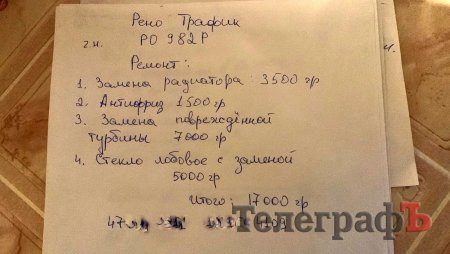 Рено Трафик
г.н. РО 982 Р
Ремонт:
1. Замена радиатора: 3500 гр
2. Антифриз 1500 гр
3. Замена повреждённой
турбины 7000 гр
4. Стекло лобовое с заменой
5000 гр
Итого: 17000 гр
ТелеграфЪ